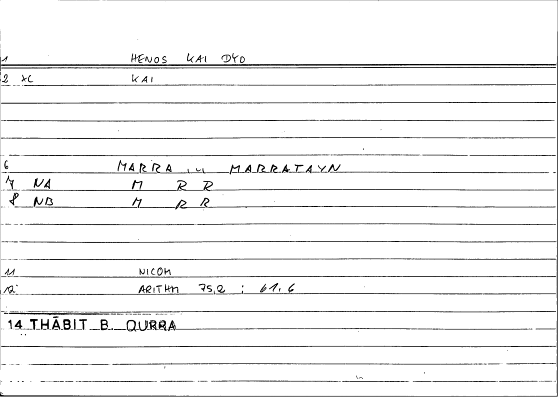 1 HENOS KAI DYO
2 *C KAI
6 MARRA ... MARRATAYN
7 NA M R R
8 NB M R R
11 NICOM
12 ARITHM 75,2 : 61,6
14 THĀBIT B. QURRA